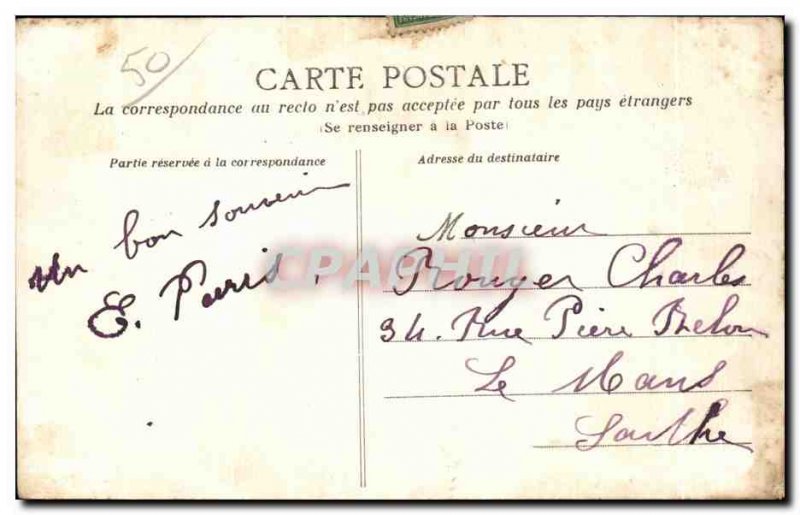 50
CARTE POSTALE
La correspondance au recto n'est pas acceptée par tous les pays étrangers
(Se renseigner à la Poste)
Partie réservée à la correspondance
Un bon souvenir
E. Parris
Adresse du destinataire
Monsieur
Rouger Charles
34. Rue Pière Belon
Le Mans
Sarthe
CPAPHIL